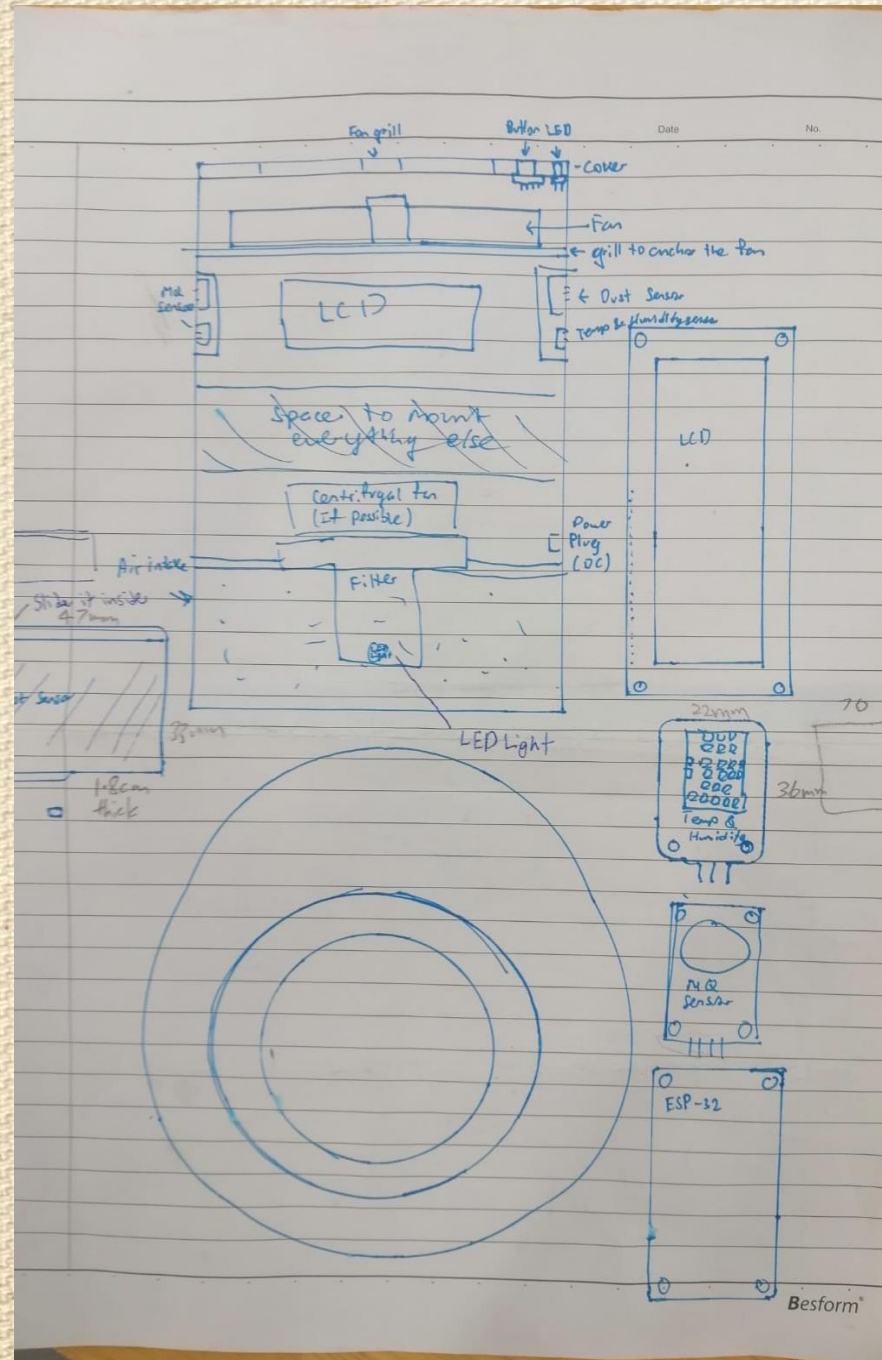 Date
No.
Fan grill
Button LED
- Cover
Fan
grill to anchor the fan
MQ
Sensor
LCD
Dust Sensor
Temp & Humidity sensor
Space to mount
everything else
Centrifugal fan
(If possible)
Power
Plug
(DC)
Air intake
Filter
Slide it inside
47mm
LED Light
Sensor
1.8cm
thick
LCD
22mm
36mm
70
Temp &
Humidity
MQ
Sensor
ESP-32
Besform